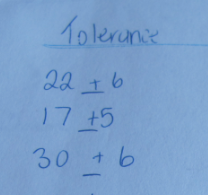 Tolerance
22 ± 6
17 ±5
30 ± 6